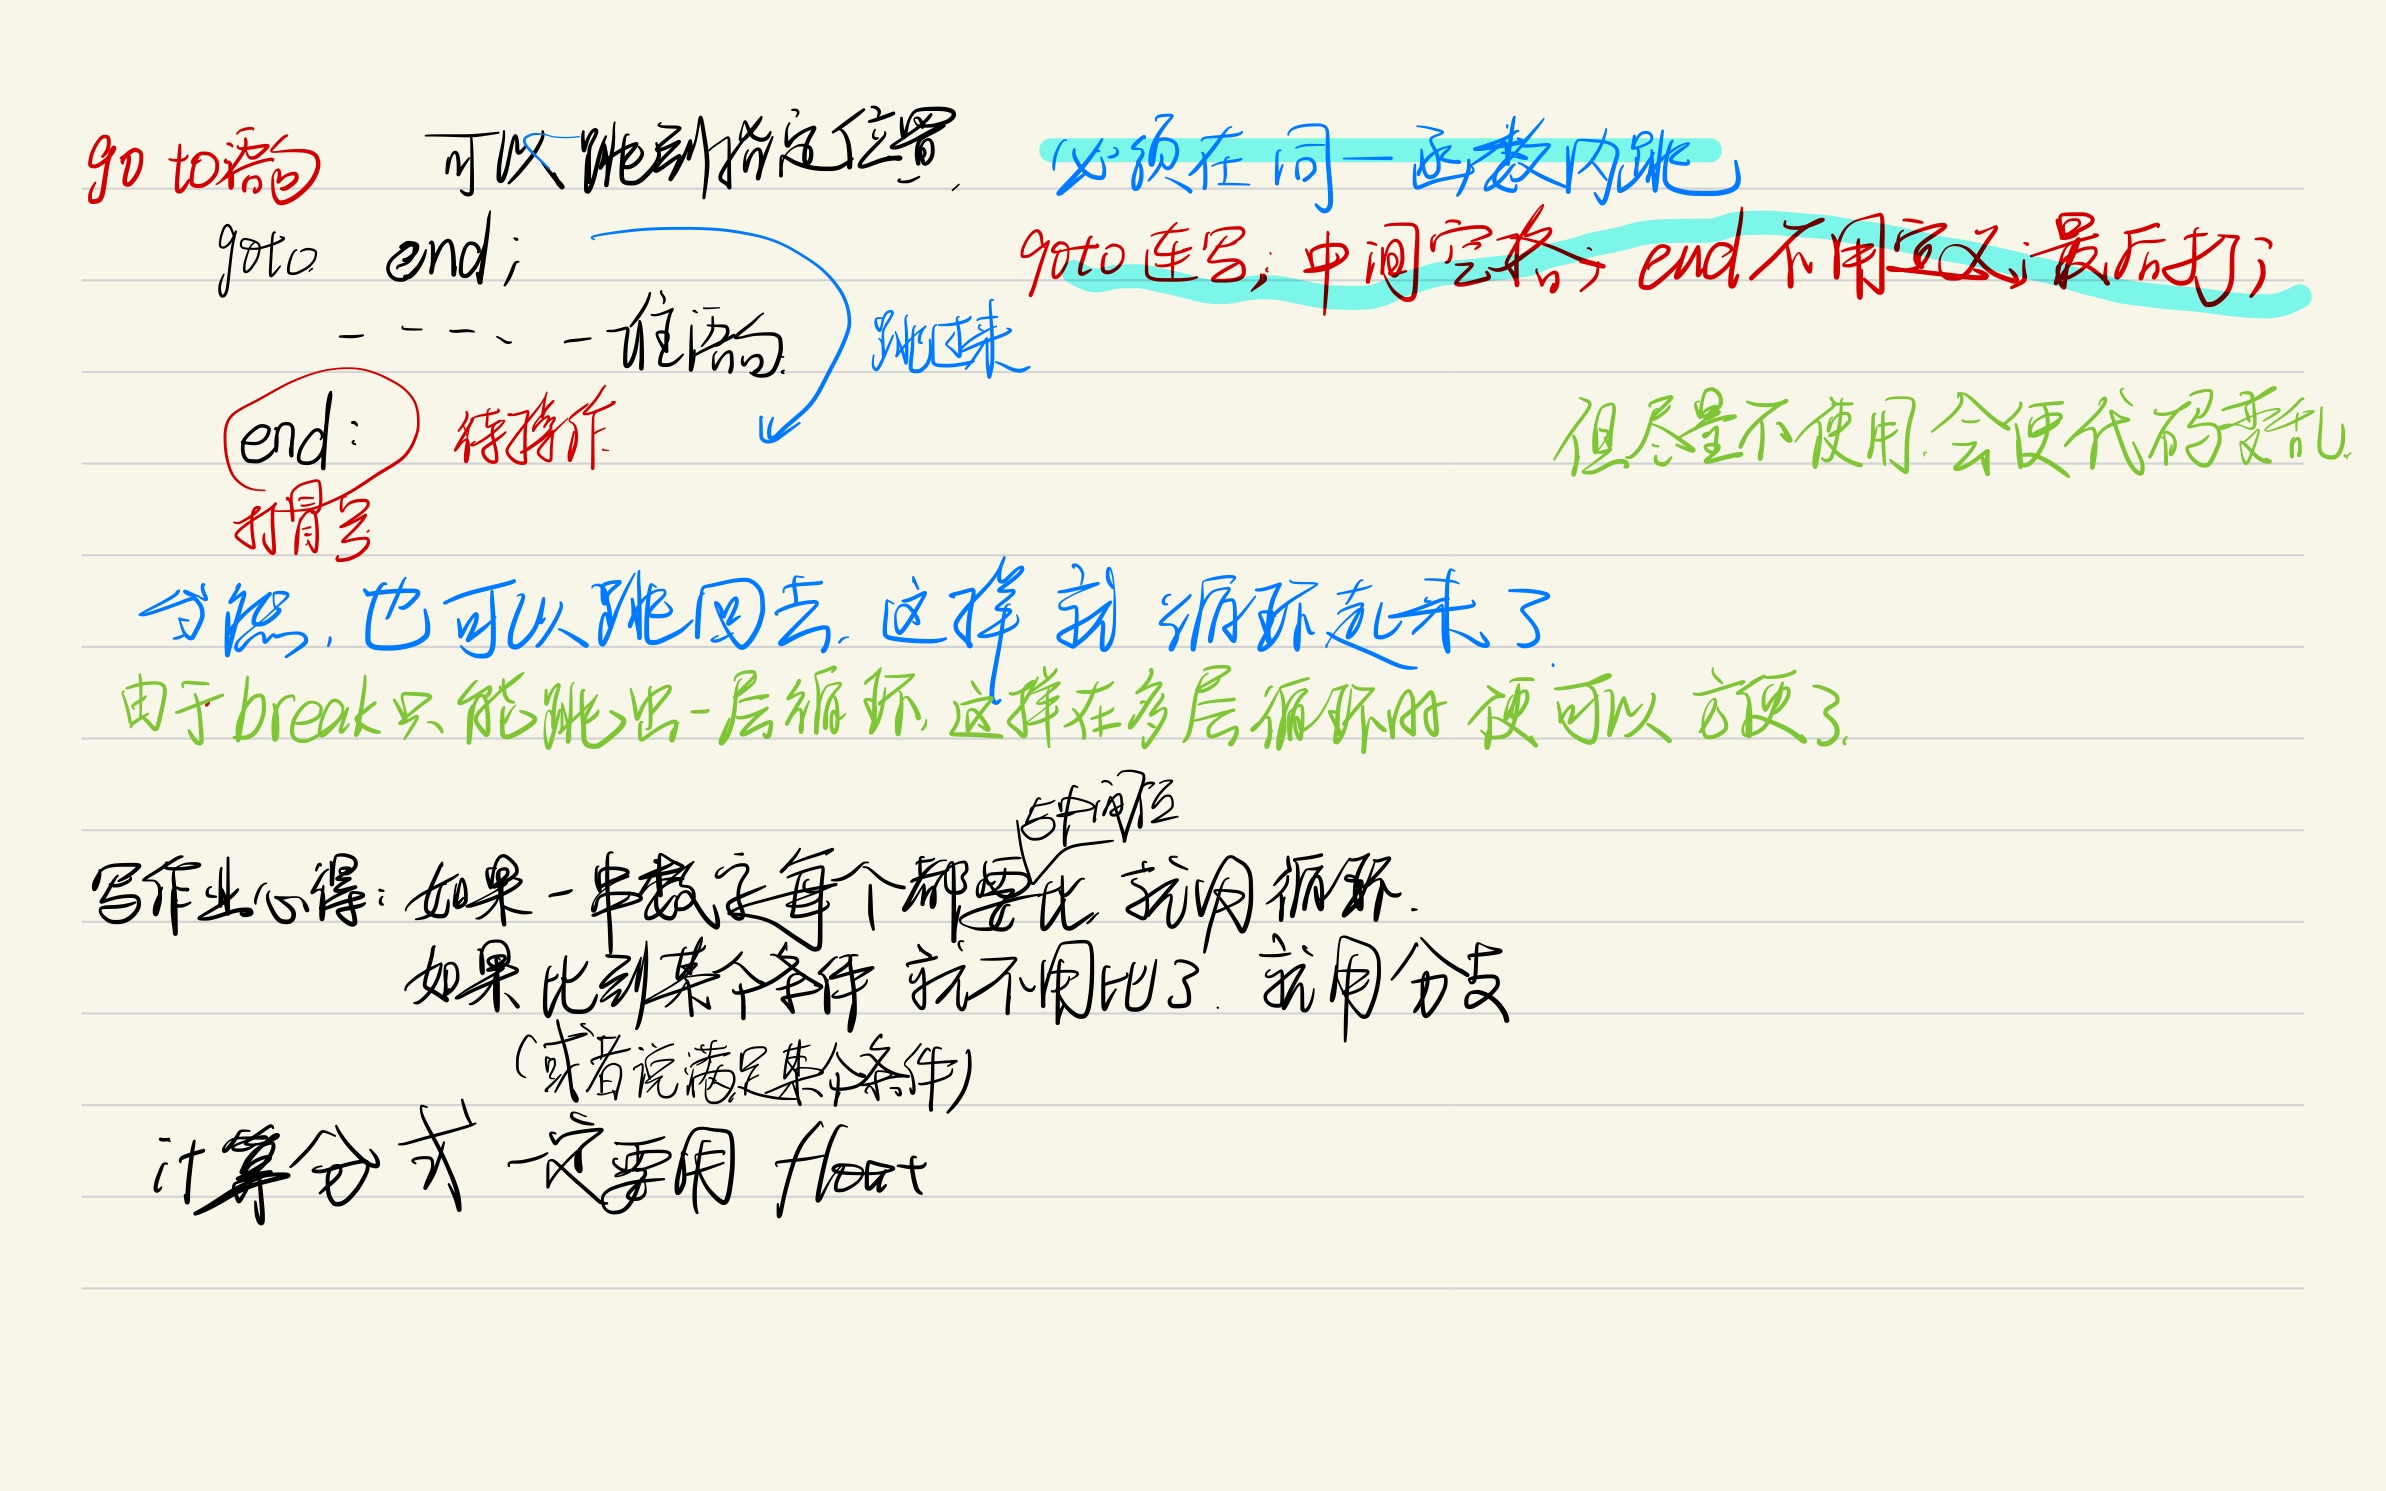 go to语句 可以跳到指定位置. 必须在同一函数内跳
goto end; goto连写;中间空格;end不用定义;最后打;
- - - - - 一堆语句. 跳过来
end: 待操作 但尽量不使用.会使代码变乱.
打冒号
当然,也可以跳回去.这样就循环起来了.
由于break只能跳出一层循环,这样在多层循环时便可以方便了.
与中间位
写作业心得:如果一串数字每个都要比,就用循环.
如果比到某个条件就不用比了.就用分支
(或者说满足某个条件)
计算分式一定要用 float